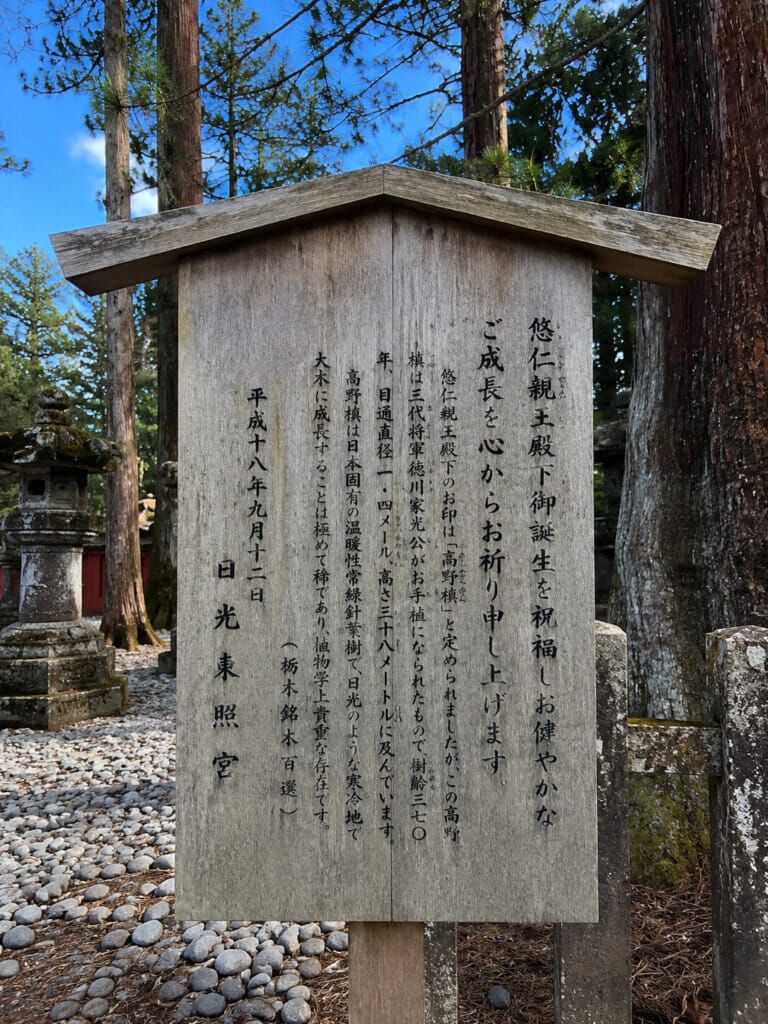 悠仁親王殿下御誕生を祝福しお健やかな
ご成長を心からお祈り申し上げます。
悠仁親王殿下のお印は「高野槙」と定められましたが、この高野
槙は三代将軍徳川家光公がお手植になられたもので、樹齢三七〇
年、目通直径一・四メール、高さ三十八メートルに及んでいます。
高野槙は日本固有の温暖性常緑針葉樹で、日光のような寒冷地で
大木に成長することは極めて稀であり、植物学上貴重な存在です。
(栃木銘木百選)
平成十八年九月十二日
日光東照宮